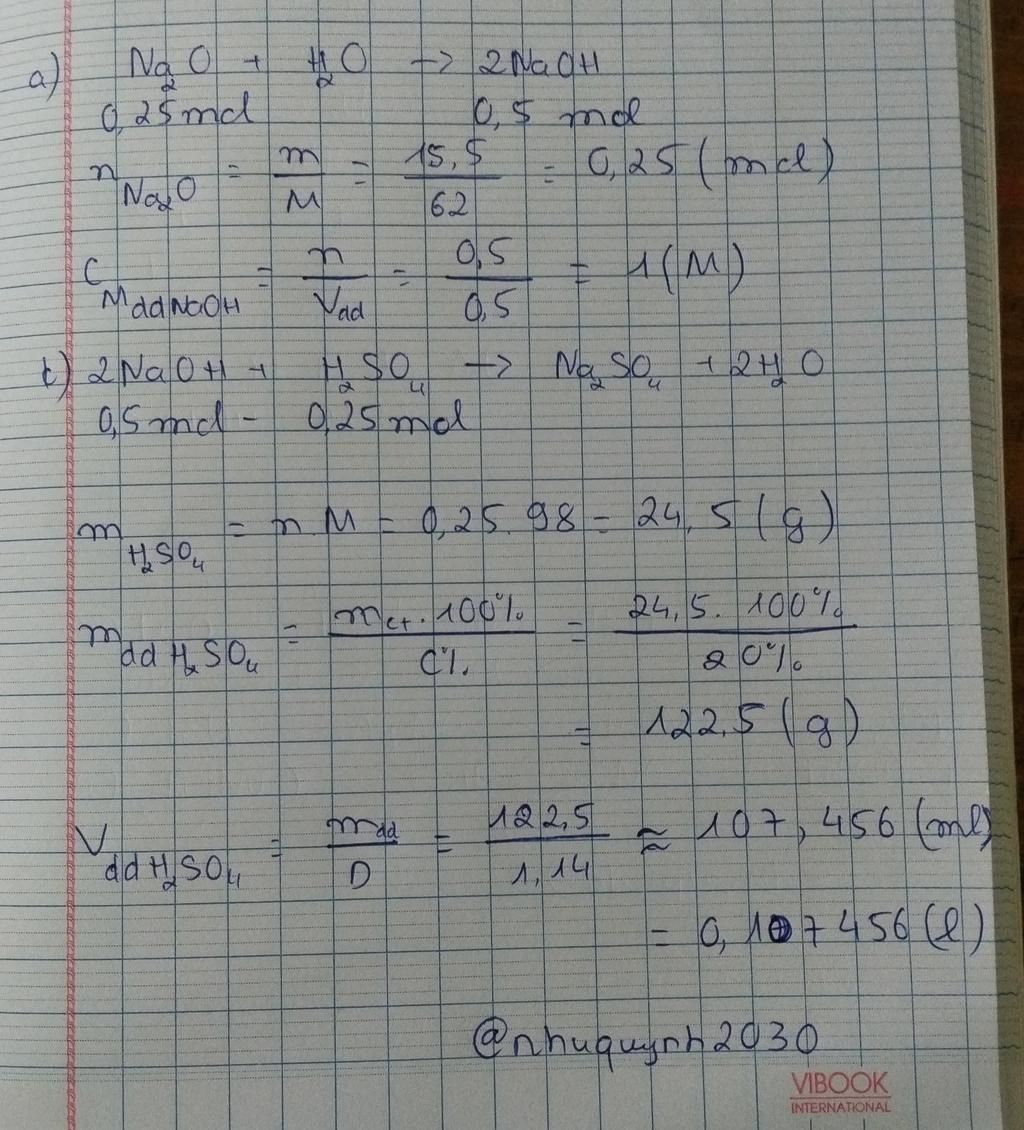 a) Na₂O + H₂O → 2NaOH
0,25 mol 0,5 mol
n Na₂O = m/M = 15,5/62 = 0,25 (mol)
C M dd NaOH = n/Vdd = 0,5/0,5 = 1 (M)
b) 2NaOH + H₂SO₄ → Na₂SO₄ + 2H₂O
0,5 mol - 0,25 mol
m H₂SO₄ = n.M = 0,25.98 = 24,5 (g)
m dd H₂SO₄ = mct.100%/C% = 24,5.100%/20%
= 122,5 (g)
V dd H₂SO₄ = mdd/D = 122,5/1,14 ≈ 107,456 (ml)
= 0,107456 (l)
@nhuquynh2030
VIBOOK
INTERNATIONAL